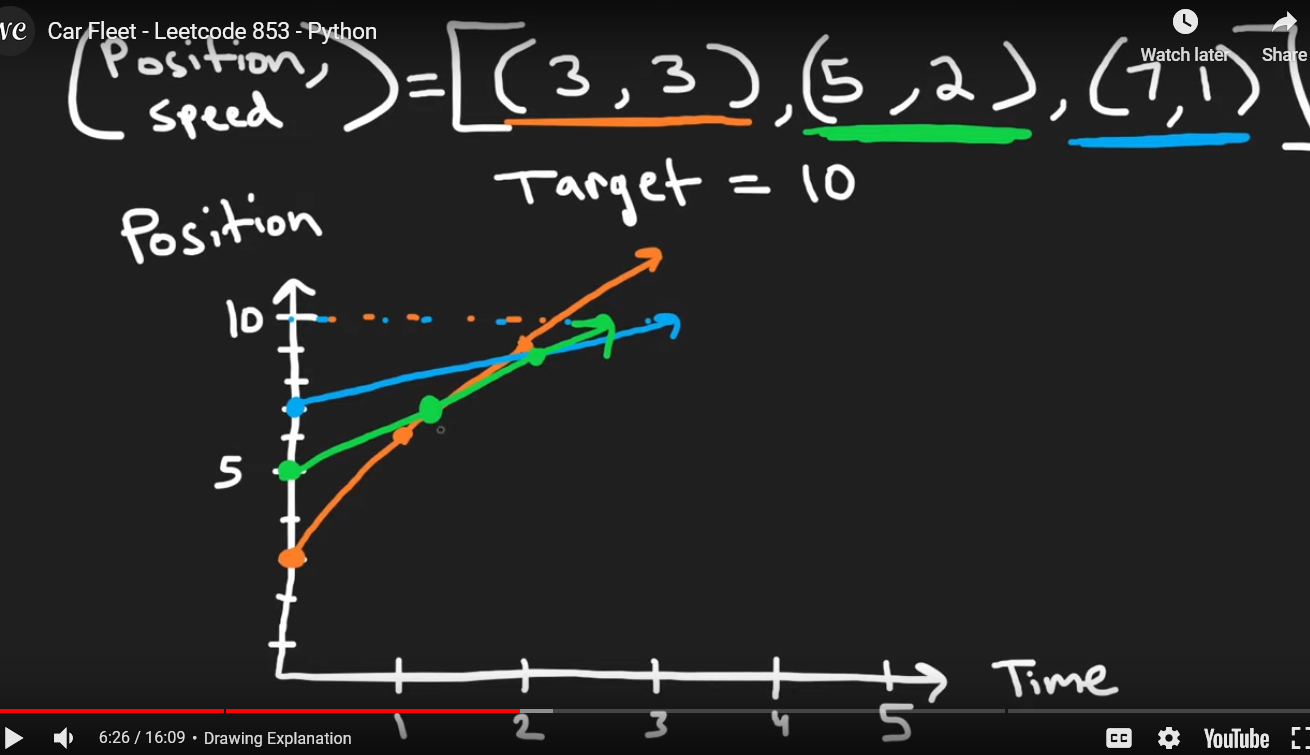 NC Car Fleet - Leetcode 853 - Python
Watch later Share
(Position, speed) = [(3,3),(5,2),(7,1)]
Target = 10
Position
10
5
Time
1 2 3 4 5
6:26 / 16:09 • Drawing Explanation
CC YouTube